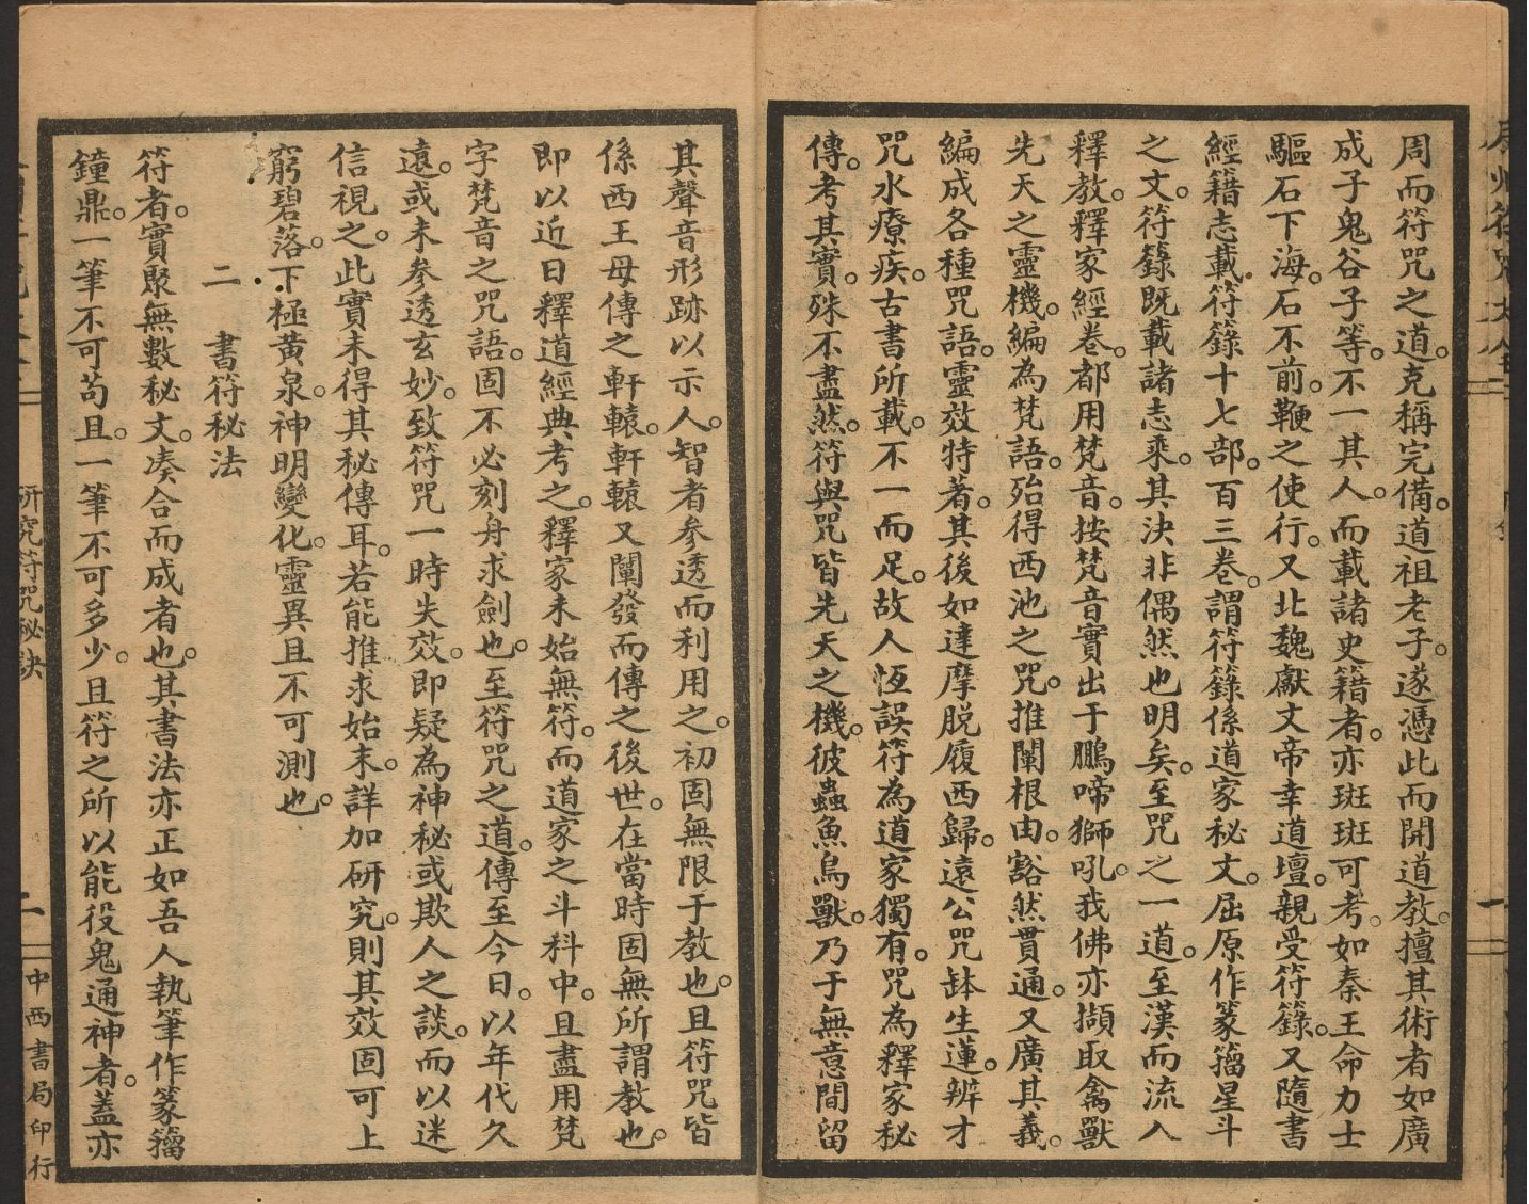 周而符咒之道。克稱完備。道祖老子。遂憑此而開道教。擅其術者如廣
成子鬼谷子等。不一其人。而載諸史籍者。亦斑斑可考。如秦王命力士
驅石下海。石不前。鞭之使行。又北魏獻文帝幸道壇。親受符籙。又隨書
經籍志載。符籙十七部。百三卷。謂符籙係道家秘文。屈原作篆籀星斗
之文。符籙既載諸志乘。其決非偶然也明矣。至咒之一道。至漢而流入
釋教。釋家經卷。都用梵音。按梵音實出于鵬啼獅吼。我佛亦擷取禽獸
先天之靈機。編為梵語。殆得西池之咒。推闡根由。豁然貫通。又廣其義。
編成各種咒語。靈效特著。其後如達摩脫履西歸。遠公咒缽生蓮。辨才
咒水療疾。古書所載。不一而足。故人恆誤符為道家獨有。咒為釋家秘
傳。考其實。殊不盡然。符與咒皆先天之機。彼蟲魚鳥獸。乃于無意間留
其聲音形跡以示人。智者參透而利用之。初固無限于教也。且符咒皆
係西王母傳之軒轅。軒轅又闡發而傳之後世。在當時固無所謂教也。
即以近日釋道經典考之。釋家未始無符。而道家之斗科中。且盡用梵
字梵音之咒語。固不必刻舟求劍也。至符咒之道。傳至今日。以年代久
遠。或未參透玄妙。致符咒一時失效。即疑為神秘或欺人之談。而以迷
信視之。此實未得其秘傳耳。若能推求始末。詳加研究。則其效固可上
窮碧落。下極黃泉。神明變化。靈異且不可測也。
二　書符秘法
符者。實聚無數秘文。凑合而成者也。其書法亦正如吾人執筆作篆籀
鐘鼎。一筆不可苟且。一筆不可多少。且符之所以能役鬼通神者。蓋亦
研究符咒秘訣
二
中西書局印行